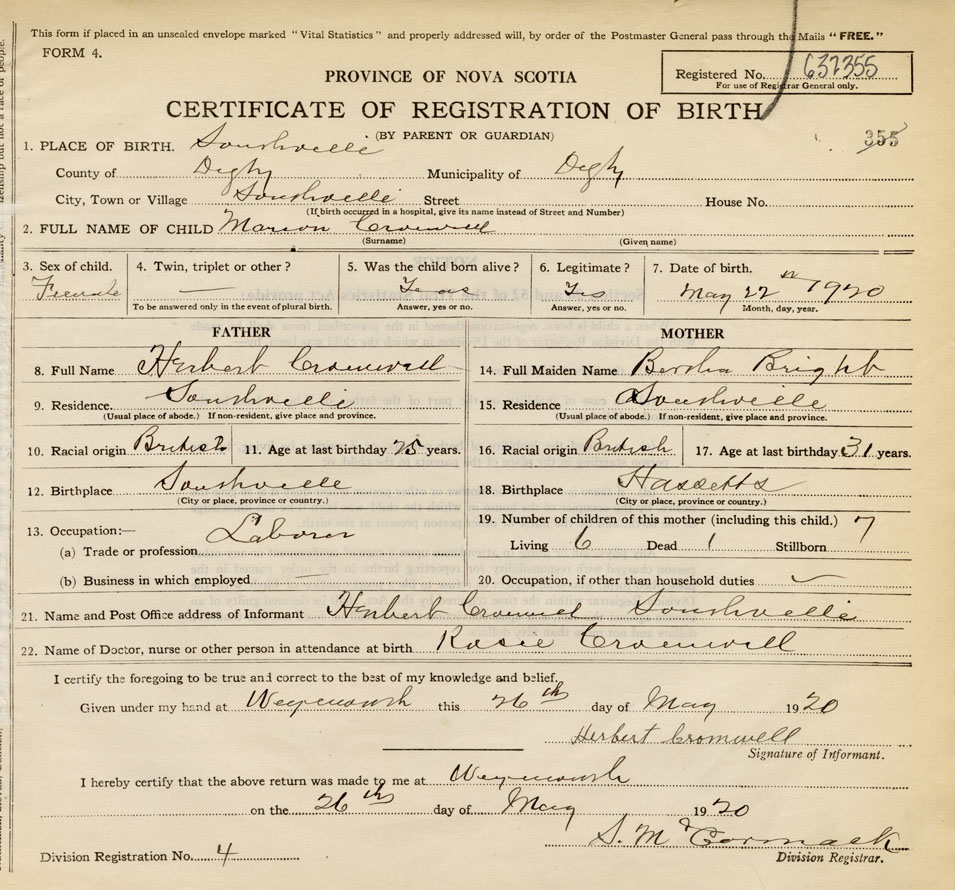 This form if placed in an unsealed envelope marked "Vital Statistics" and properly addressed will, by order of the Postmaster General pass through the Mails "FREE."
FORM 4.
PROVINCE OF NOVA SCOTIA
Registered No. 637355
For use of Registrar General only.
CERTIFICATE OF REGISTRATION OF BIRTH
(BY PARENT OR GUARDIAN)
355
1. PLACE OF BIRTH. Southville
County of Digby Municipality of Digby
City, Town or Village Southville Street House No.
(If birth occurred in a hospital, give its name instead of Street and Number)
2. FULL NAME OF CHILD Marion Cromwell
(Surname) (Given name)
3. Sex of child. 4. Twin, triplet or other? 5. Was the child born alive? 6. Legitimate? 7. Date of birth.
Female — Yes Yes May 22 1920
To be answered only in the event of plural birth. Answer, yes or no. Answer, yes or no. Month, day, year.
FATHER MOTHER
8. Full Name Herbert Cromwell 14. Full Maiden Name Bertha Bright
9. Residence. Southville 15. Residence Southville
(Usual place of abode.) If non-resident, give place and province. (Usual place of abode.) If non-resident, give place and province.
10. Racial origin British 11. Age at last birthday years. 16. Racial origin British 17. Age at last birthday 31 years.
12. Birthplace Southville 18. Birthplace Hassetts
(City or place, province or country.) (City or place, province or country.)
13. Occupation:— Laborer 19. Number of children of this mother (including this child.) 7
(a) Trade or profession Living 6 Dead 1 Stillborn
(b) Business in which employed — 20. Occupation, if other than household duties
21. Name and Post Office address of Informant Herbert Southville
22. Name of Doctor, nurse or other person in attendance at birth Rosie Cromwell
I certify the foregoing to be true and correct to the best of my knowledge and belief.
Given under my hand at Weymouth this 26th day of May 1920
Herbert Cromwell
Signature of Informant.
I hereby certify that the above return was made to me at Weymouth
on the 26th day of May 1920
S. McCormack
Division Registrar.
Division Registration No. 4